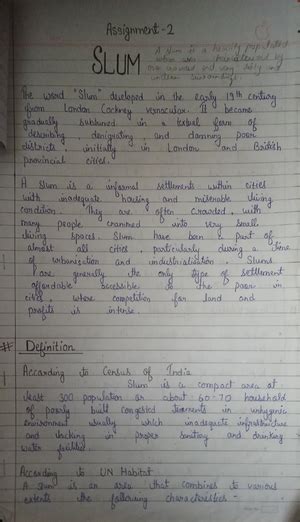 Assignment-2
SLUM
A slum is a heavily populated
area which was
over crowded and very dirty and
unclean surroundings
The word "Slum" developed in the early 19th century
from London Cockney vernacular. It became
gradually subsumed in a textual form of
describing, designating and damning poor
districts initially in London and British
provincial cities.
A Slum is a informal settlements within cities
with inadequate housing and miserable living
condition. They are often crowded, with
many people crammed into very small
living spaces. Slum have been a part of
almost all cities particularly during a time
of urbanisation and industrialization. Slums
are generally the only type of settlement
affordable accessible to the poor in
cities, where competition for land and
profits is intense.
# Definition
According to Census of India
Slum is a compact area at
least 300 population or about 60-70 household
of poorly built congested tenements in unhygenic
environment usually which inadequate infrastructure
and lacking in proper sanitary and drinking
water facilities.
According to UN Habitat
A Slum is an area that combines to various
extents the following characteristics -